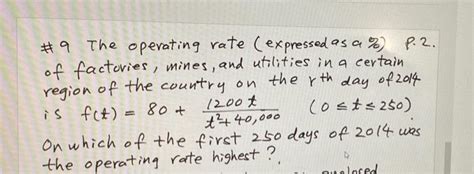 #9 The operating rate (expressed as a %) P.2.
of factories, mines, and utilities in a certain
region of the country on the rth day of 2014
is f(t) = 80 + 1200 t / t²+40,000 (0 ≤ t ≤ 250)
On which of the first 250 days of 2014 was
the operating rate highest?